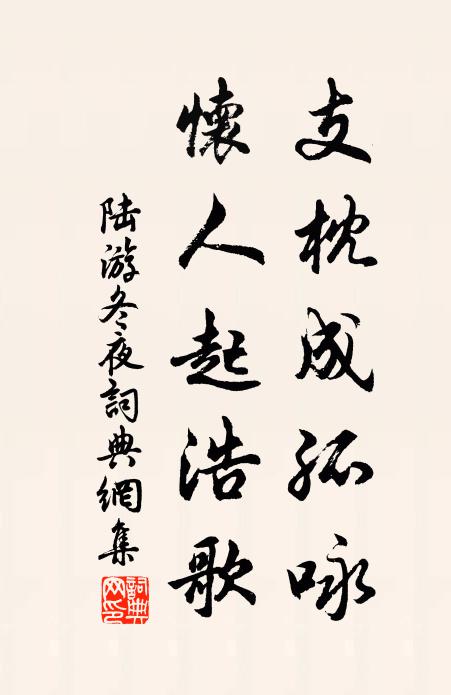 支枕成孤咏
懷人起浩歌
陸游冬夜詞典網集
詞典网印